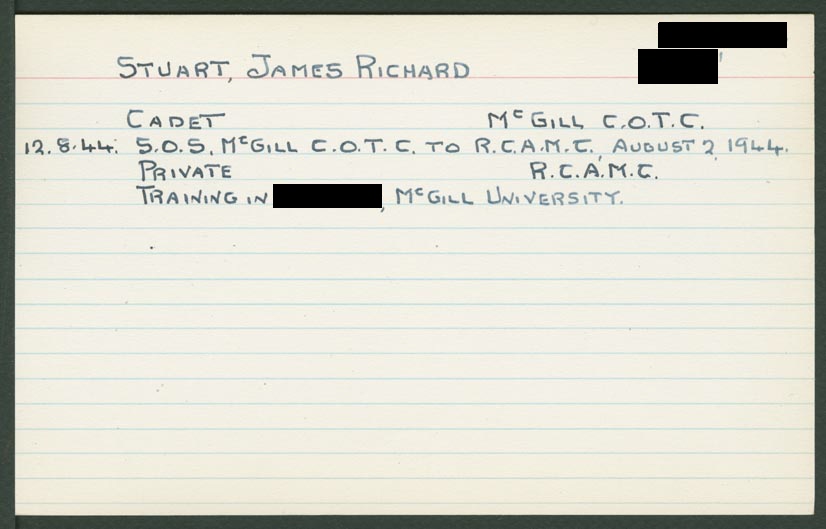 STUART, JAMES RICHARD
CADET McGILL C.O.T.C.
12.8.44. S.O.S. McGILL C.O.T.C. TO R.C.A.M.C., AUGUST 2, 1944.
PRIVATE R.C.A.M.C.
TRAINING IN , McGILL UNIVERSITY.